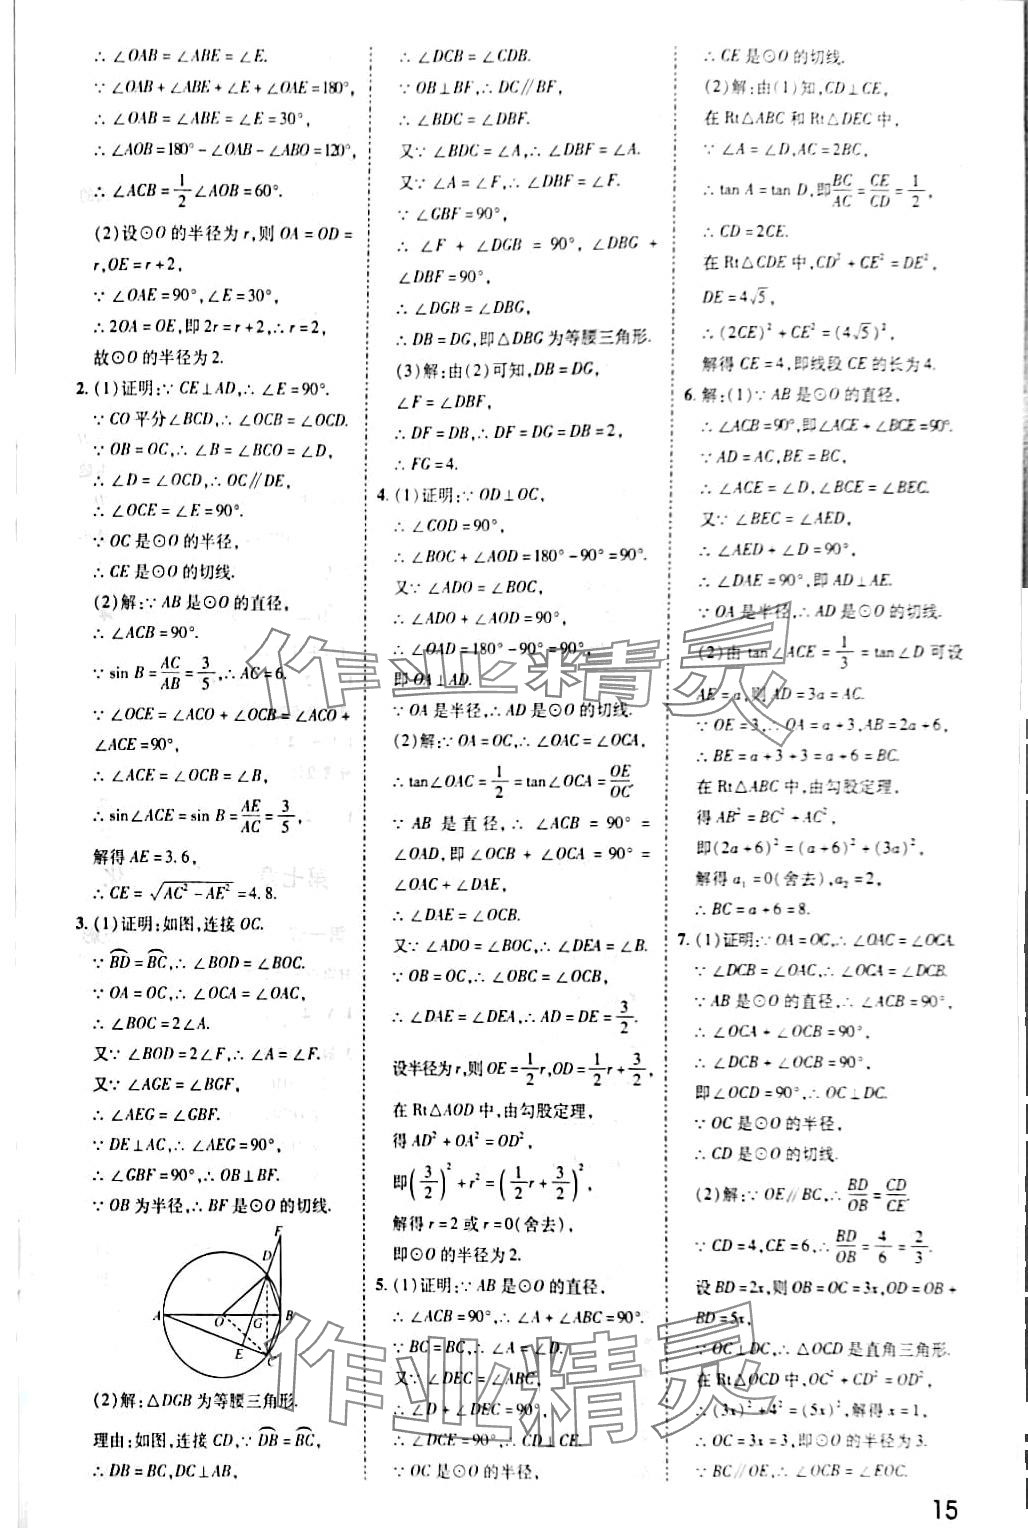 ∴ ∠OAB = ∠ABE = ∠E.
∵ ∠OAB + ∠ABE + ∠E + ∠OAE = 180°,
∴ ∠OAB = ∠ABE = ∠E = 30°,
∴ ∠AOB = 180° − ∠OAB − ∠ABO = 120°,
∴ ∠ACB = 1/2 ∠AOB = 60°.
(2)设⊙O 的半径为 r,则 OA = OD =
r,OE = r + 2,
∵ ∠OAE = 90°,∠E = 30°,
∴ 2OA = OE,即 2r = r + 2,∴ r = 2,
故⊙O 的半径为 2.
2. (1)证明:∵ CE⊥AD,∴ ∠E = 90°.
∵ CO 平分∠BCD,∴ ∠OCB = ∠OCD.
∵ OB = OC,∴ ∠B = ∠BCO = ∠D,
∴ ∠D = ∠OCD,∴ OC∥DE,
∴ ∠OCE = ∠E = 90°.
∵ OC 是⊙O 的半径,
∴ CE 是⊙O 的切线.
(2)解:∵ AB 是⊙O 的直径,
∴ ∠ACB = 90°.
∵ sin B = AC/AB = 3/5,∴ AC = 6.
∵ ∠OCE = ∠ACO + ∠OCB = ∠ACO +
∠ACE = 90°,
∴ ∠ACE = ∠OCB = ∠B,
∴ sin∠ACE = sin B = AE/AC = 3/5,
解得 AE = 3.6,
∴ CE = √(AC² − AE²) = 4.8.
3. (1)证明:如图,连接 OC.
∵ B͡D = B͡C,∴ ∠BOD = ∠BOC.
∵ OA = OC,∴ ∠OCA = ∠OAC,
∴ ∠BOC = 2∠A.
又∵ ∠BOD = 2∠F,∴ ∠A = ∠F.
又∵ ∠AGE = ∠BGF,
∴ ∠AEG = ∠GBF.
∵ DE⊥AC,∴ ∠AEG = 90°,
∴ ∠GBF = 90°,∴ OB⊥BF.
∵ OB 为半径,∴ BF 是⊙O 的切线.
F
D
A
O
G
B
E
C
(2)解:△DGB 为等腰三角形.
理由:如图,连接 CD,∵ D͡B = B͡C,
∴ DB = BC,DC⊥AB,
∴ ∠DCB = ∠CDB.
∵ OB⊥BF,∴ DC∥BF,
∴ ∠BDC = ∠DBF.
又∵ ∠BDC = ∠A,∴ ∠DBF = ∠A.
又∵ ∠A = ∠F,∴ ∠DBF = ∠F.
∵ ∠GBF = 90°,
∴ ∠F + ∠DGB = 90°,∠DBG +
∠DBF = 90°,
∴ ∠DGB = ∠DBG,
∴ DB = DG,即△DBG 为等腰三角形.
(3)解:由(2)可知,DB = DG,
∠F = ∠DBF,
∴ DF = DB,∴ DF = DG = DB = 2,
∴ FG = 4.
4. (1)证明:∵ OD⊥OC,
∴ ∠COD = 90°,
∴ ∠BOC + ∠AOD = 180° − 90° = 90°.
又∵ ∠ADO = ∠BOC,
∴ ∠ADO + ∠AOD = 90°,
∴ ∠OAD = 180° − 90° = 90°,
即 OA⊥AD.
∵ OA 是半径,∴ AD 是⊙O 的切线.
(2)解:∵ OA = OC,∴ ∠OAC = ∠OCA,
∴ tan∠OAC = 1/2 = tan∠OCA = OE/OC.
∵ AB 是直径,∴ ∠ACB = 90° =
∠OAD,即 ∠OCB + ∠OCA = 90° =
∠OAC + ∠DAE,
∴ ∠DAE = ∠OCB.
又∵ ∠ADO = ∠BOC,∴ ∠DEA = ∠B.
∵ OB = OC,∴ ∠OBC = ∠OCB,
∴ ∠DAE = ∠DEA,∴ AD = DE = 3/2.
设半径为 r,则 OE = 1/2 r,OD = 1/2 r + 3/2,
在 Rt△AOD 中,由勾股定理,
得 AD² + OA² = OD²,
即(3/2)² + r² = (1/2 r + 3/2)²,
解得 r = 2 或 r = 0(舍去),
即⊙O 的半径为 2.
5. (1)证明:∵ AB 是⊙O 的直径,
∴ ∠ACB = 90°,∴ ∠A + ∠ABC = 90°.
∵ BC = BC,∴ ∠A = ∠D.
又∵ ∠DEC = ∠ABC,
∴ ∠D + ∠DEC = 90°,
∴ ∠DCE = 90°,∴ CD⊥CE.
∵ OC 是⊙O 的半径,
∴ CE 是⊙O 的切线.
(2)解:由(1)知,CD⊥CE,
在 Rt△ABC 和 Rt△DEC 中,
∵ ∠A = ∠D,AC = 2BC,
∴ tan A = tan D,即BC/AC = CE/CD = 1/2,
∴ CD = 2CE.
在 Rt△CDE 中,CD² + CE² = DE²,
DE = 4√5,
∴ (2CE)² + CE² = (4√5)²,
解得 CE = 4,即线段 CE 的长为 4.
6. 解:(1)∵ AB 是⊙O 的直径,
∴ ∠ACB = 90°,即∠ACE + ∠BCE = 90°.
∵ AD = AC,BE = BC,
∴ ∠ACE = ∠D,∠BCE = ∠BEC.
又∵ ∠BEC = ∠AED,
∴ ∠AED + ∠D = 90°,
∴ ∠DAE = 90°,即 AD⊥AE.
∵ OA 是半径,∴ AD 是⊙O 的切线.
(2)由 tan∠ACE = 1/3 = tan∠D 可设
AE = a,则 AD = 3a = AC.
∵ OE = 3,∴ OA = a + 3,AB = 2a + 6,
∴ BE = a + 3 + 3 = a + 6 = BC.
在 Rt△ABC 中,由勾股定理,
得 AB² = BC² + AC²,
即(2a + 6)² = (a + 6)² + (3a)²,
解得 a₁ = 0(舍去),a₂ = 2,
∴ BC = a + 6 = 8.
7. (1)证明:∵ OA = OC,∴ ∠OAC = ∠OCA.
∵ ∠DCB = ∠OAC,∴ ∠OCA = ∠DCB.
∵ AB 是⊙O 的直径,∴ ∠ACB = 90°,
∴ ∠OCA + ∠OCB = 90°,
∴ ∠DCB + ∠OCB = 90°,
即∠OCD = 90°,∴ OC⊥DC.
∵ OC 是⊙O 的半径,
∴ CD 是⊙O 的切线.
(2)解:∵ OE∥BC,∴ BD/OB = CD/CE.
∵ CD = 4,CE = 6,∴ BD/OB = 4/6 = 2/3.
设 BD = 2x,则 OB = OC = 3x,OD = OB +
BD = 5x,
∵ OC⊥DC,∴ △OCD 是直角三角形.
在 Rt△OCD 中,OC² + CD² = OD²,
∴ (3x)² + 4² = (5x)²,解得 x = 1,
∴ OC = 3x = 3,即⊙O 的半径为 3.
∵ BC∥OE,∴ ∠OCB = ∠EOC.
作业精灵
作业精灵
15